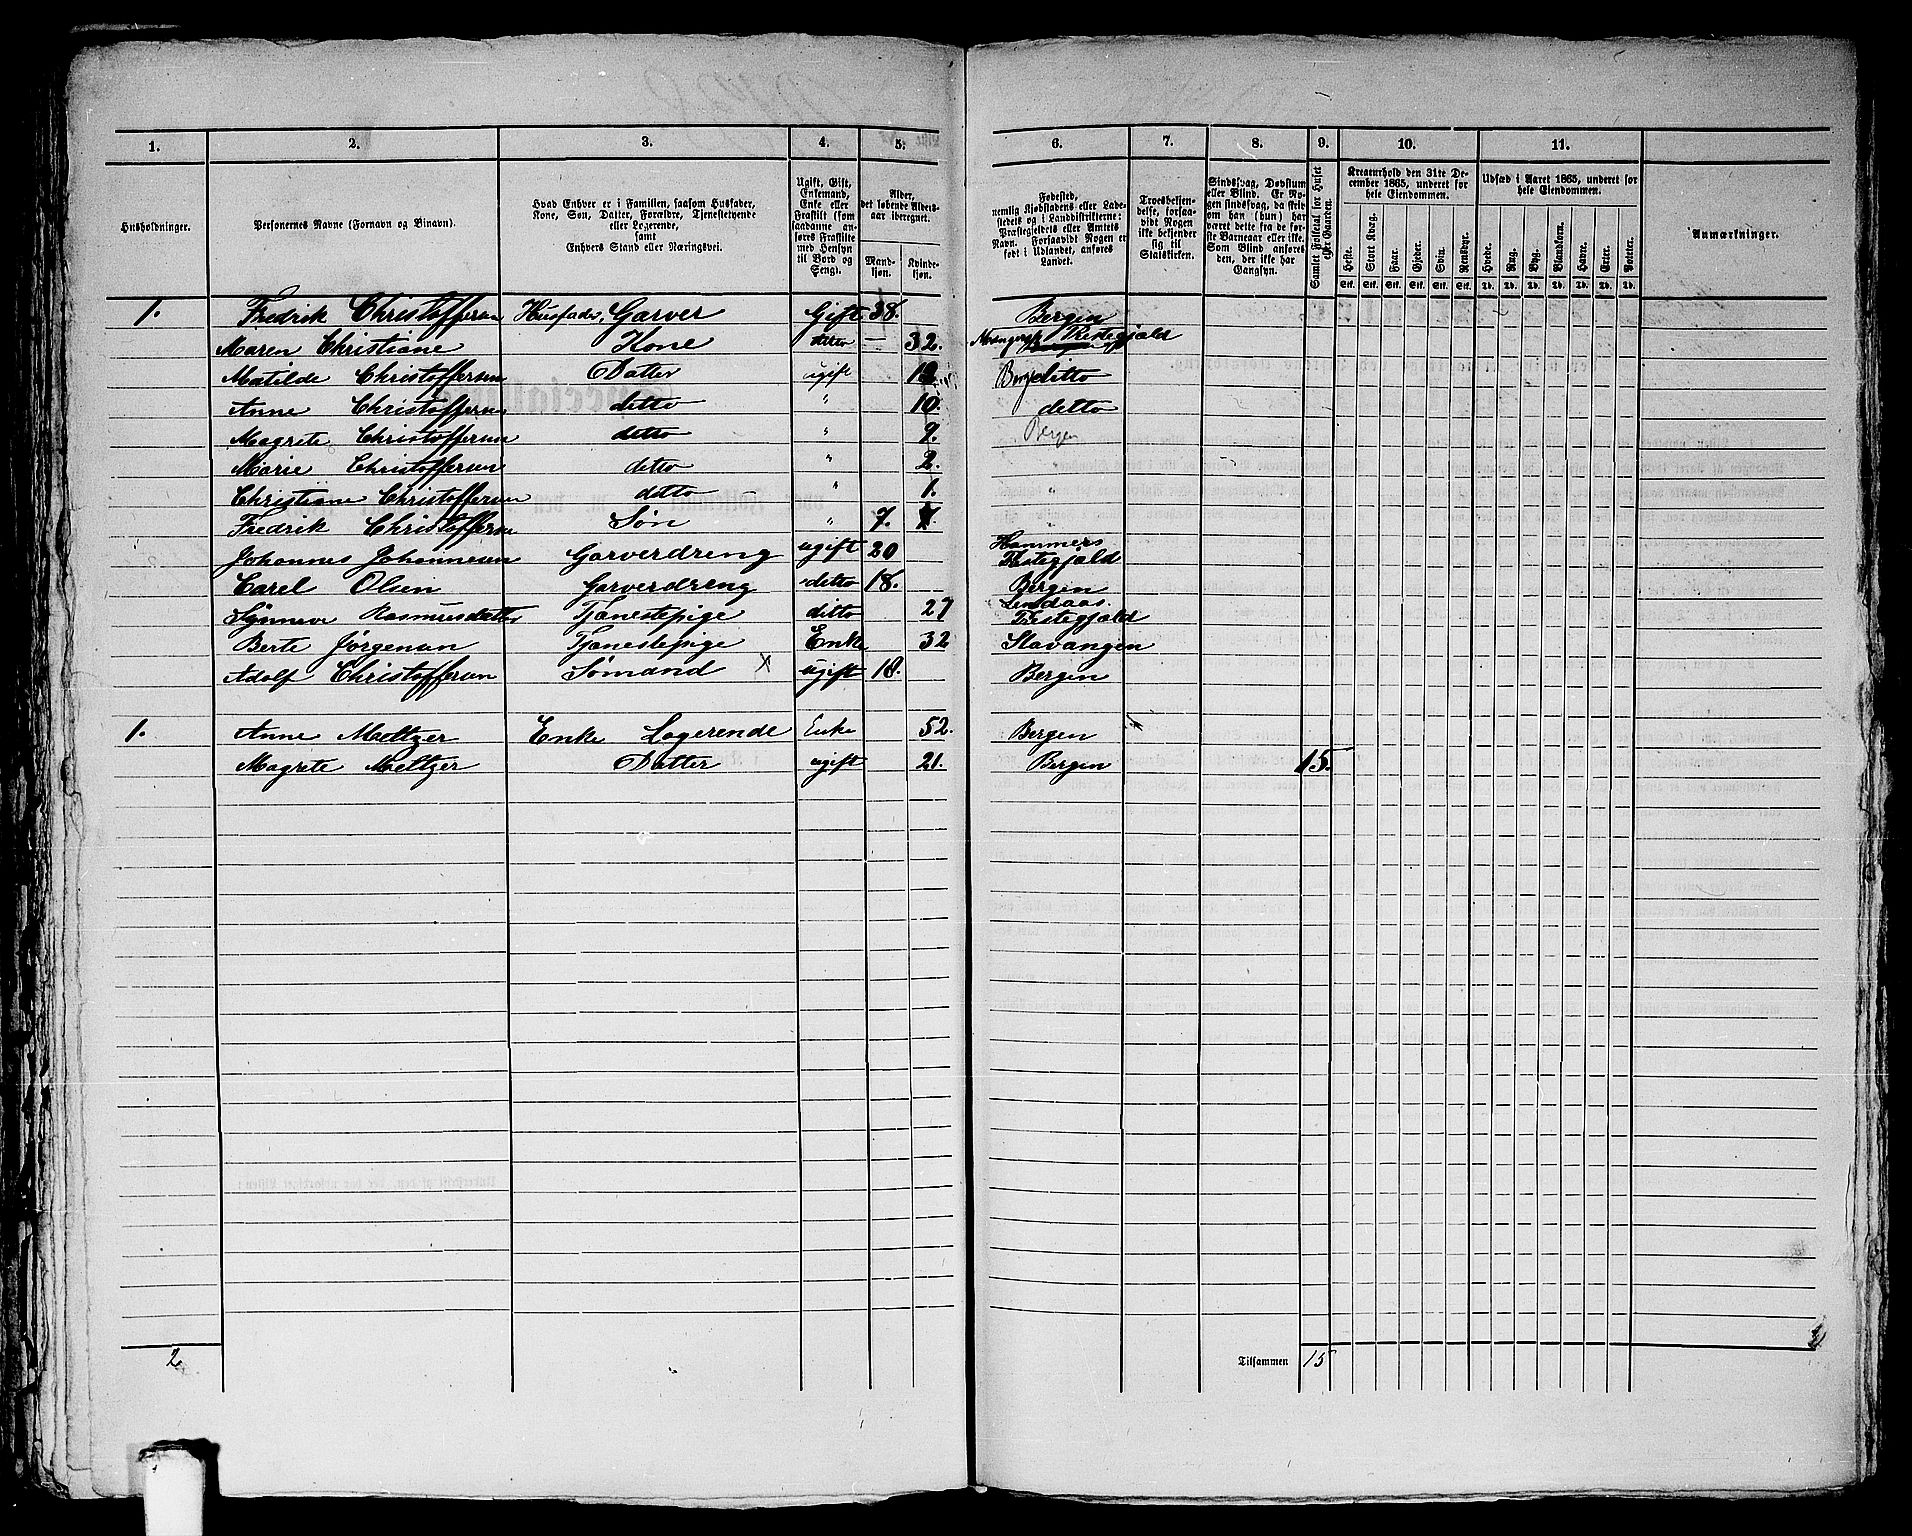 1. 2. 3. 4. 5. 6. 7. 8. 9. 10. 11.
Husholdninger.
Personernes Navne (Fornavn og Binavn).
Hvad Enhver er i Familien, saasom Husfader, Kone, Søn, Datter, Forældre, Tjenestetyende eller Logerende, samt Enhvers Stand eller Næringsvei.
Ugift, Gift, Enkemand, Enke eller Fraskilt (som saadanne anføres Fraskilte med Hensyn til Bord og Seng).
Alder, det løbende Alders-aar iberegnet.
Mandkjøn. Kvindekjøn.
Fødested, nemlig Kjøbstadens eller Ladestedets og i Landdistrikterne: Præstegjeldets eller Amtets Navn. Forsaavidt Nogen er født i Udlandet, anføres Landet.
Troesbekjendelse, forsaavidt Nogen ikke bekjender sig til Statskirken.
Sindssvag, Døvstum eller Blind. Er Nogen sindssvag, da skrives om han (hun) har været dette fra de første Barneaar eller ikke. Som Blind anføres den, der ikke har Gangsyn.
Samlet Folketal for Huset eller Gaarden.
Kreaturhold den 31te December 1865, underet for hele Eiendommen.
Heste. Stort Kvæg. Faar. Gjeder. Sviin. Rensdyr.
Udsæd i Aaret 1865, underet for hele Eiendommen.
Hvede. Rug. Byg. Blandkorn. Havre. Erter. Poteter.
Anmærkninger.
1. Fredrik Christoffersen Husfader, Garver Gift 38. Bergen
Maren Christiane Kone ditto — 32. Præstegjæld
Matilde Christoffersen Datter ugift 12. Berg ditto
Anne Christoffersen ditto " 10. ditto
Magrete Christoffersen ditto " 9. Bergen
Marie Christoffersen ditto " 2. "
Christiane Christoffersen ditto " 1. "
Fredrik Christoffersen Søn " 7. "
Johannes Johannesen Garverdreng ugift 20 Hammers Præstegjæld
Carel Olsen Garverdreng ditto 18. Bergen
Synneve Rasmusdatter Tjanestepige ditto 27 Lindaas. Præstegjæld
Berte Jørgensen Tjanestepige Enke 32 Stavangen
Adolf Christoffersen Sømand x ugift 18. Bergen
1. Anne Meltzer Enke Logerende Enke 52. Bergen
Magrete Meltzer Datter ugift 21. Bergen 15.
2 Tilsammen 15